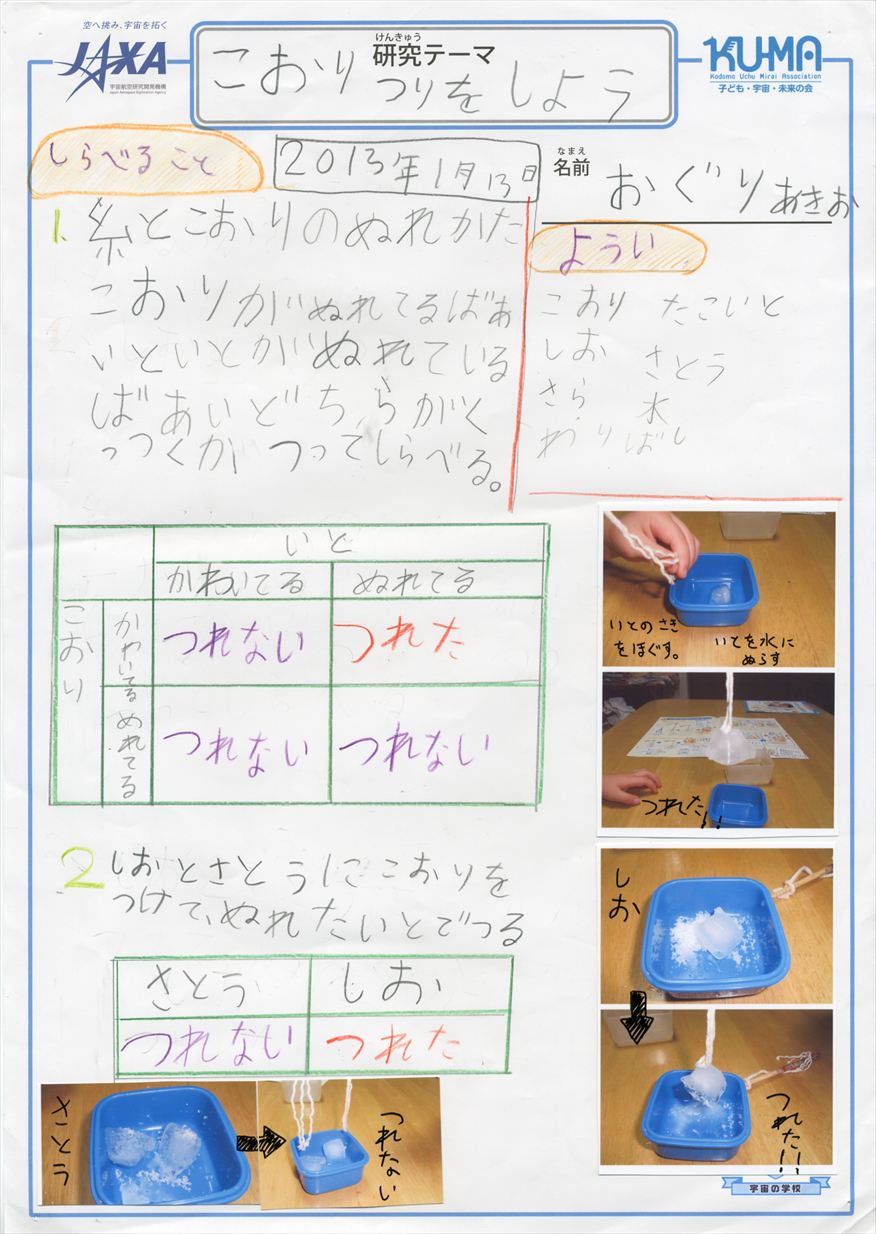 空へ挑み、宇宙を拓く
JAXA
宇宙航空研究開発機構
Japan Aerospace Exploration Agency
けんきゅう
研究テーマ
こおりつりをしよう
KU-MA
Kodomo Uchu Mirai Association
子ども・宇宙・未来の会
しらべること
2013年1月13日
なまえ
名前
おぐりあきお
1.糸とこおりのぬれかた
こおりがぬれてるばあ
いといとがぬれている
ばあいどちらがく
っつくかつってしらべる。
ようい
こおり たこいと
しお さとう
さら 水
わりばし
いと
かわいてる ぬれてる
こおり
かわいてる つれない つれた
ぬれてる つれない つれない
いとのさき
をほぐす。
いとを水に
ぬらす
つれた!!
2 しおとさとうにこおりを
つけて、ぬれたいとでつる
さとう しお
つれない つれた
しお
つれた!!
さとう
つれない
宇宙の学校